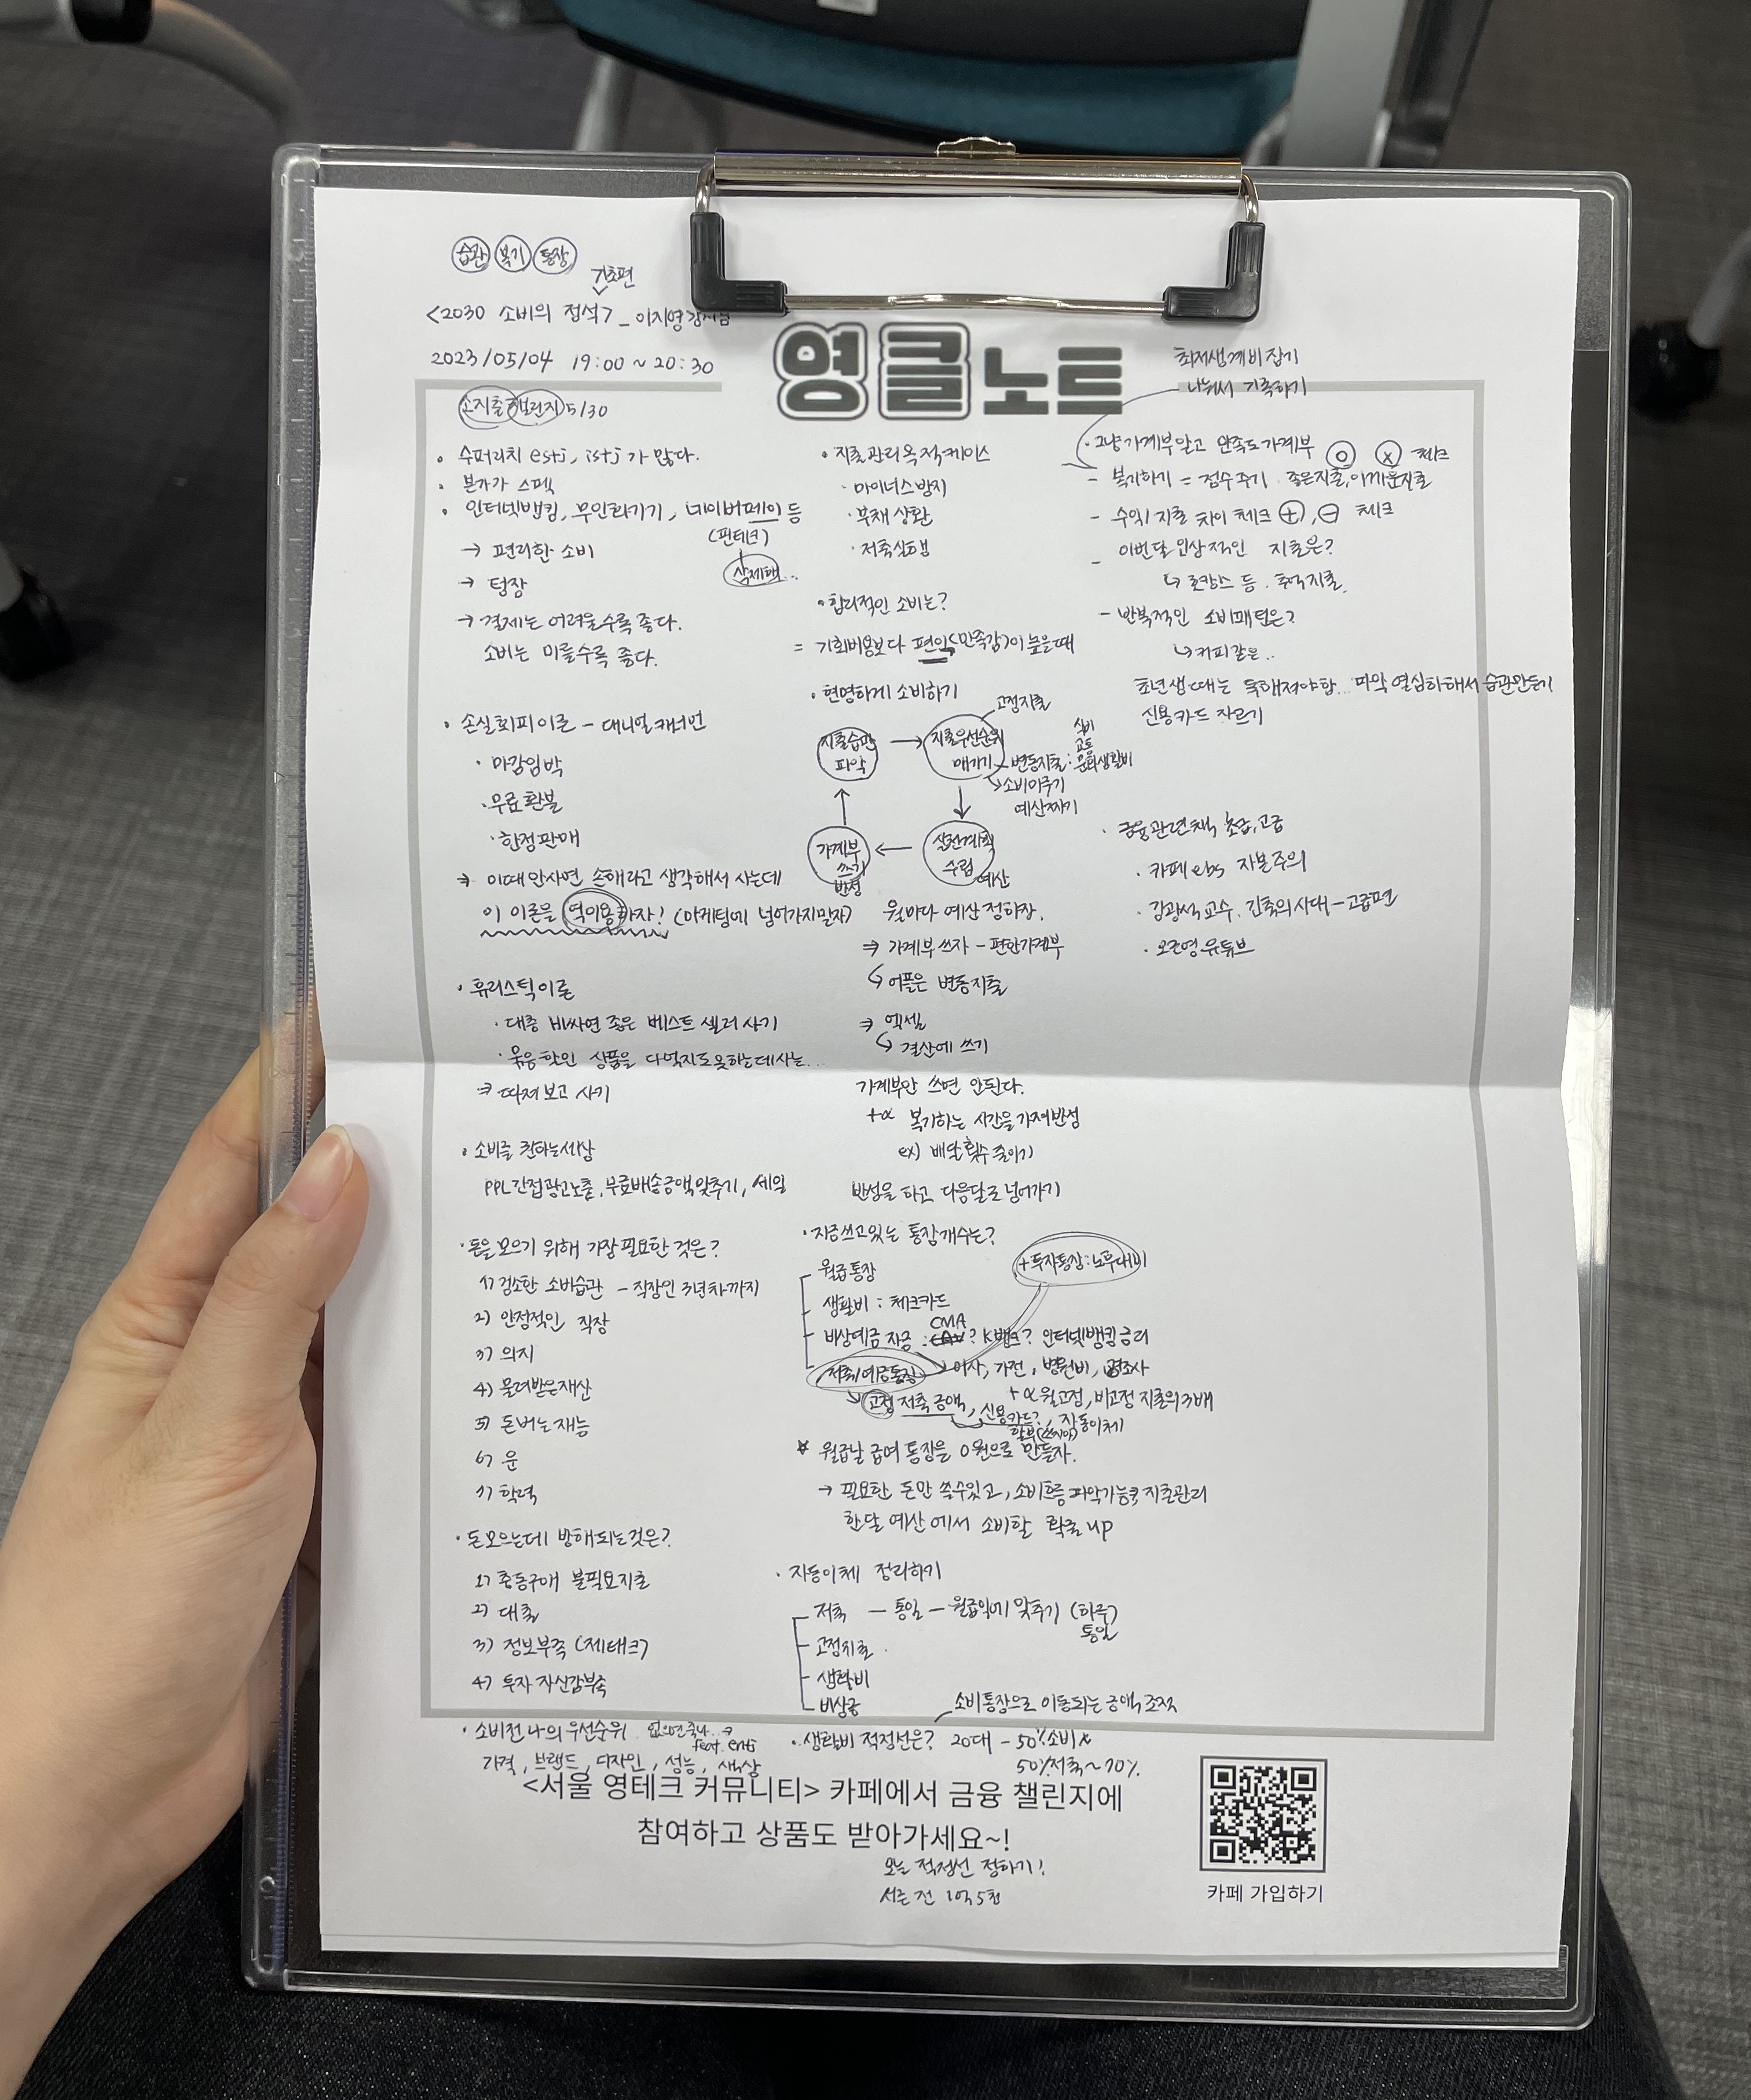 습관 복기 통장
기초편
<2030 소비의 정석> _ 이지영강사님
2023/05/04 19:00 ~ 20:30
영클노트
소지출 챌린지 5/30
· 수퍼리치 estj, istj 가 많다.
· 본가가 스펙
· 인터넷뱅킹, 무인화기기, 네이버페이 등
(핀테크)
삭제해...
→ 편리한 소비
→ 텅장
→ 결제는 어려울수록 좋다.
소비는 미룰수록 좋다.
· 손실회피이론 - 대니얼 캐너먼
· 마감임박
· 무료환불
· 한정판매
⇒ 이때 안사면 손해라고 생각해서 사는데
이 이론을 역이용하자! (마케팅에 넘어가지말자)
· 휴리스틱이론
· 대충 비싸면 좋은 베스트 셀러 사기
· 묶음할인 상품을 다 먹지도 못하는데 사는...
⇒ 따져보고 사기
· 소비를 권하는세상
PPL 간접광고노출, 무료배송금액맞추기, 세일
· 돈을 모으기 위해 가장 필요한 것은?
1) 검소한 소비습관 - 직장인 3년차까지
2) 안정적인 직장
3) 의지
4) 물려받은재산
5) 돈버는재능
6) 운
7) 학력
· 돈모으는데 방해되는것은?
1) 충동구매 불필요지출
2) 대출
3) 정보부족 (재테크)
4) 투자 자신감부족
· 소비전 나의 우선순위
가격, 브랜드, 디자인, 성능, 색상
· 지출관리목적케이스
· 마이너스방지
· 부채 상환
· 저축실행
· 합리적인 소비는?
= 기회비용보다 편익(만족감)이 높을때
· 현명하게 소비하기
지출습관
파악
→ 지출우선순위
매기기
고정지출
변동지출 :
식비
교통
문화생활비
소비미루기
예산짜기
실천계획
수립
예산
가계부
쓰기
반성
월마다 예산 정하장.
⇒ 가계부 쓰자 - 편한가계부
↳ 어플은 변동지출
⇒ 엑셀
↳ 결산에 쓰기
가계부만 쓰면 안된다.
+α 복기하는 시간을 가져반성
ex) 배달횟수 줄이기
반성을 하고 다음달로 넘어가기
· 지금쓰고있는 통장개수는?
+투자통장:노후대비
월급통장
생활비 : 체크카드
CMA
비상예금 자금 : ? K뱅크? 인터넷뱅킹 금리
이사, 가전, 병원비, 경조사
저축/예금통장
+α 월고정, 비고정 지출의 3배
↳ 고정 저축 금액, 신용카드?, 자동이체
* 월급날 급여 통장을 0원으로 만들자.
→ 필요한 돈만 쓸수있고, 소비흐름 파악가능 & 지출관리
한달 예산에서 소비할 확률 up
· 자동이체 정리하기
저축 - 통일 - 월급일에 맞추기 (하루)
통일
고정지출
생활비
비상금
소비통장으로 이동되는 금액 조정
· 생활비 적정선은? 20대 - 50% 소비
50% 저축 ~ 70%
최저생계비 잡기
나눠서 기록하기
· 그냥가계부말고 만족도가계부 O X 체크
- 복기하기 = 점수주기 좋은지출, 아까운지출
- 수익/지출 차이 체크 +, - 체크
- 이번달 인상적인 지출은?
↳ 호캉스 등. 추억지출.
- 반복적인 소비패턴은?
↳ 커피같은..
초년생때는 독해져야함... 파악 열심히해서 습관만들기
신용카드 자르기
· 금융관련책 초급, 고급
· 카페 ebs 자본주의
· 김광석 교수. 긴축의시대 - 고급편
· 오건영 유튜브
<서울 영테크 커뮤니티> 카페에서 금융 챌린지에
참여하고 상품도 받아가세요~!
오늘 적정선 정하기!
서른 전 1억 5천
카페 가입하기